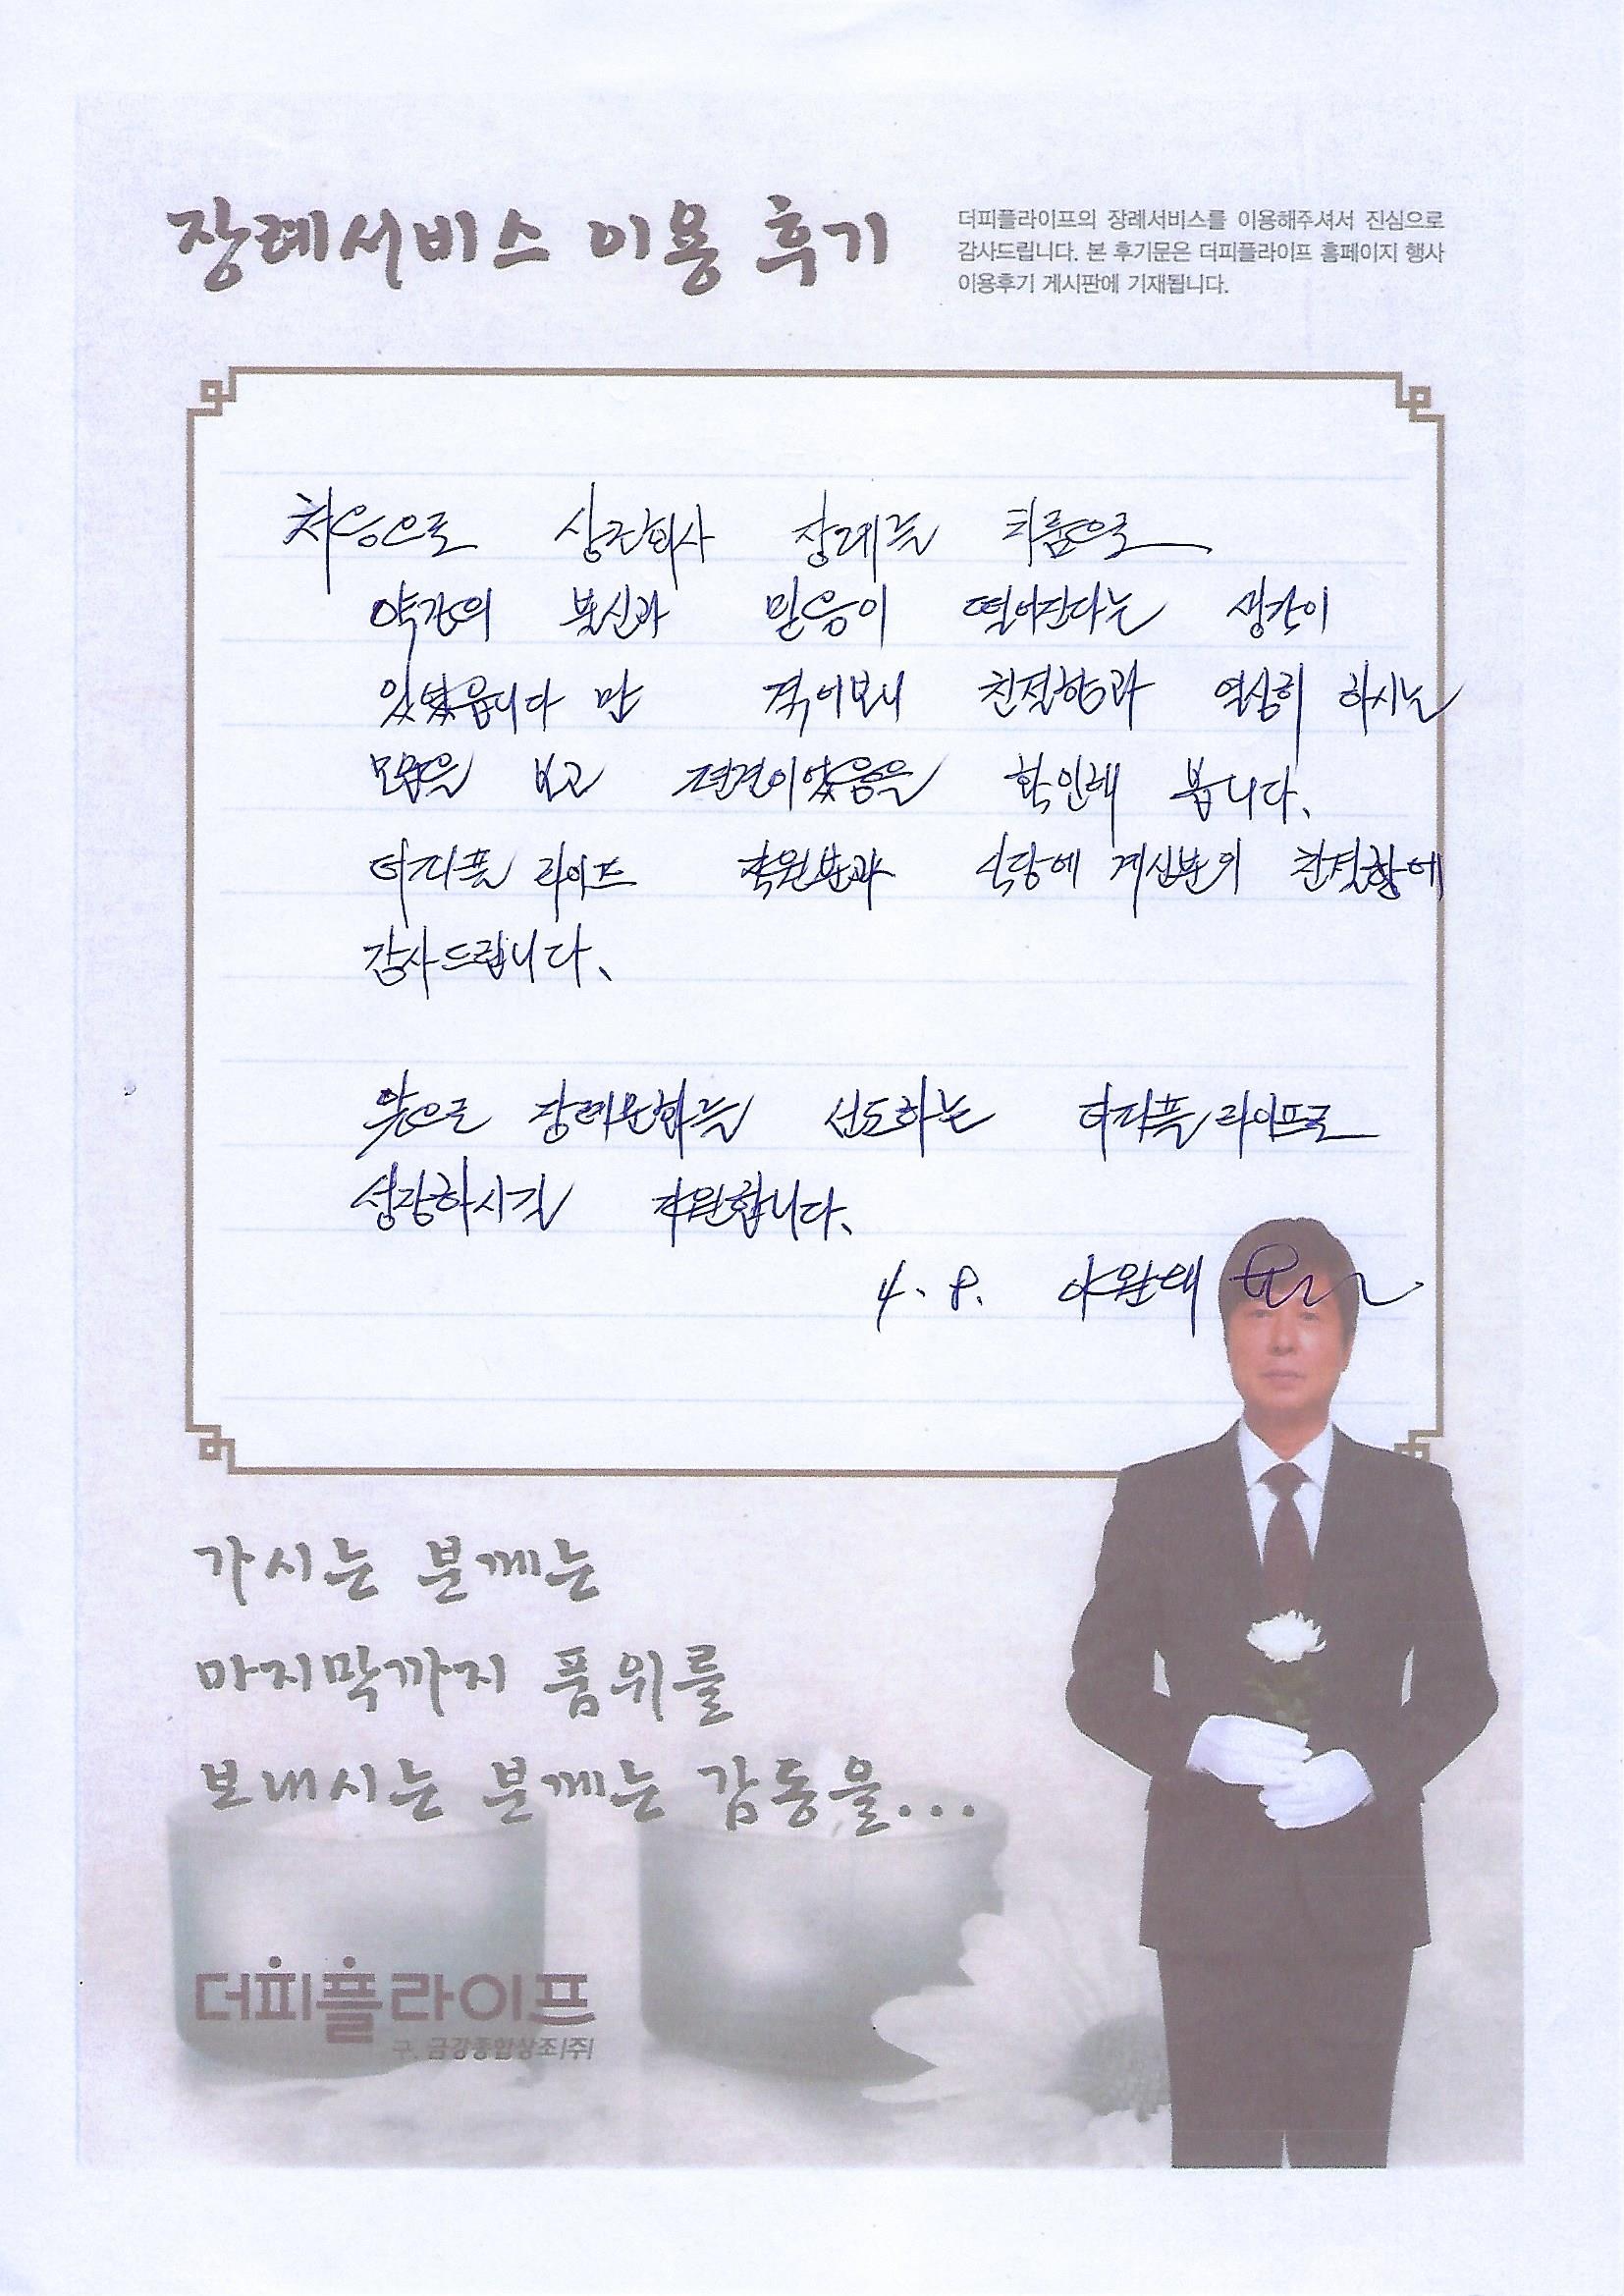 장례서비스 이용 후기
더피플라이프의 장례서비스를 이용해주셔서 진심으로
감사드립니다. 본 후기문은 더피플라이프 홈페이지 행사
이용후기 게시판에 기재됩니다.
처음으로 상조회사 장례를 치룸으로
약간의 불신과 믿음이 떨어진다는 생각이
있었읍니다 만 격어보니 친절함과 열심히 하시는
모습을 보고 편견이었음을 확인해 봅니다.
더피플 라이프 직원분과 식당에 계신분의 친절함에
감사드립니다.
앞으로 장례문화를 선도하는 더피플 라이프로
성장하시길 기원합니다.
4. 8.
가시는 분께는
마지막까지 품위를
보내시는 분께는 감동을...
더피플라이프
구. 금강종합상조(주)